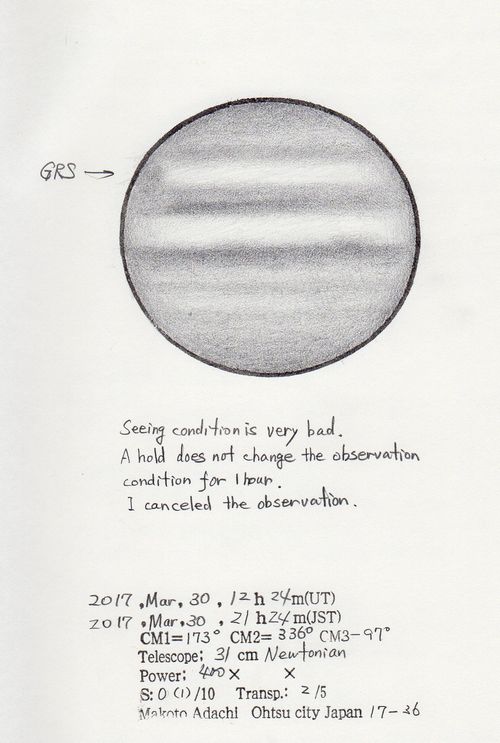 GRS →
Seeing condition is very bad.
A hold does not change the observation
condition for 1 hour.
I canceled the observation.
2017 , Mar, 30 , 12 h 24 m(UT)
2017 , Mar, 30 , 21 h 24 m(JST)
CM1= 173° CM2= 336° CM3-97°
Telescope: 31 cm Newtonian
Power: 400 × ×
S: 0 (1) /10 Transp.: 2 /5
Makoto Adachi Ohtsu city Japan 17-36